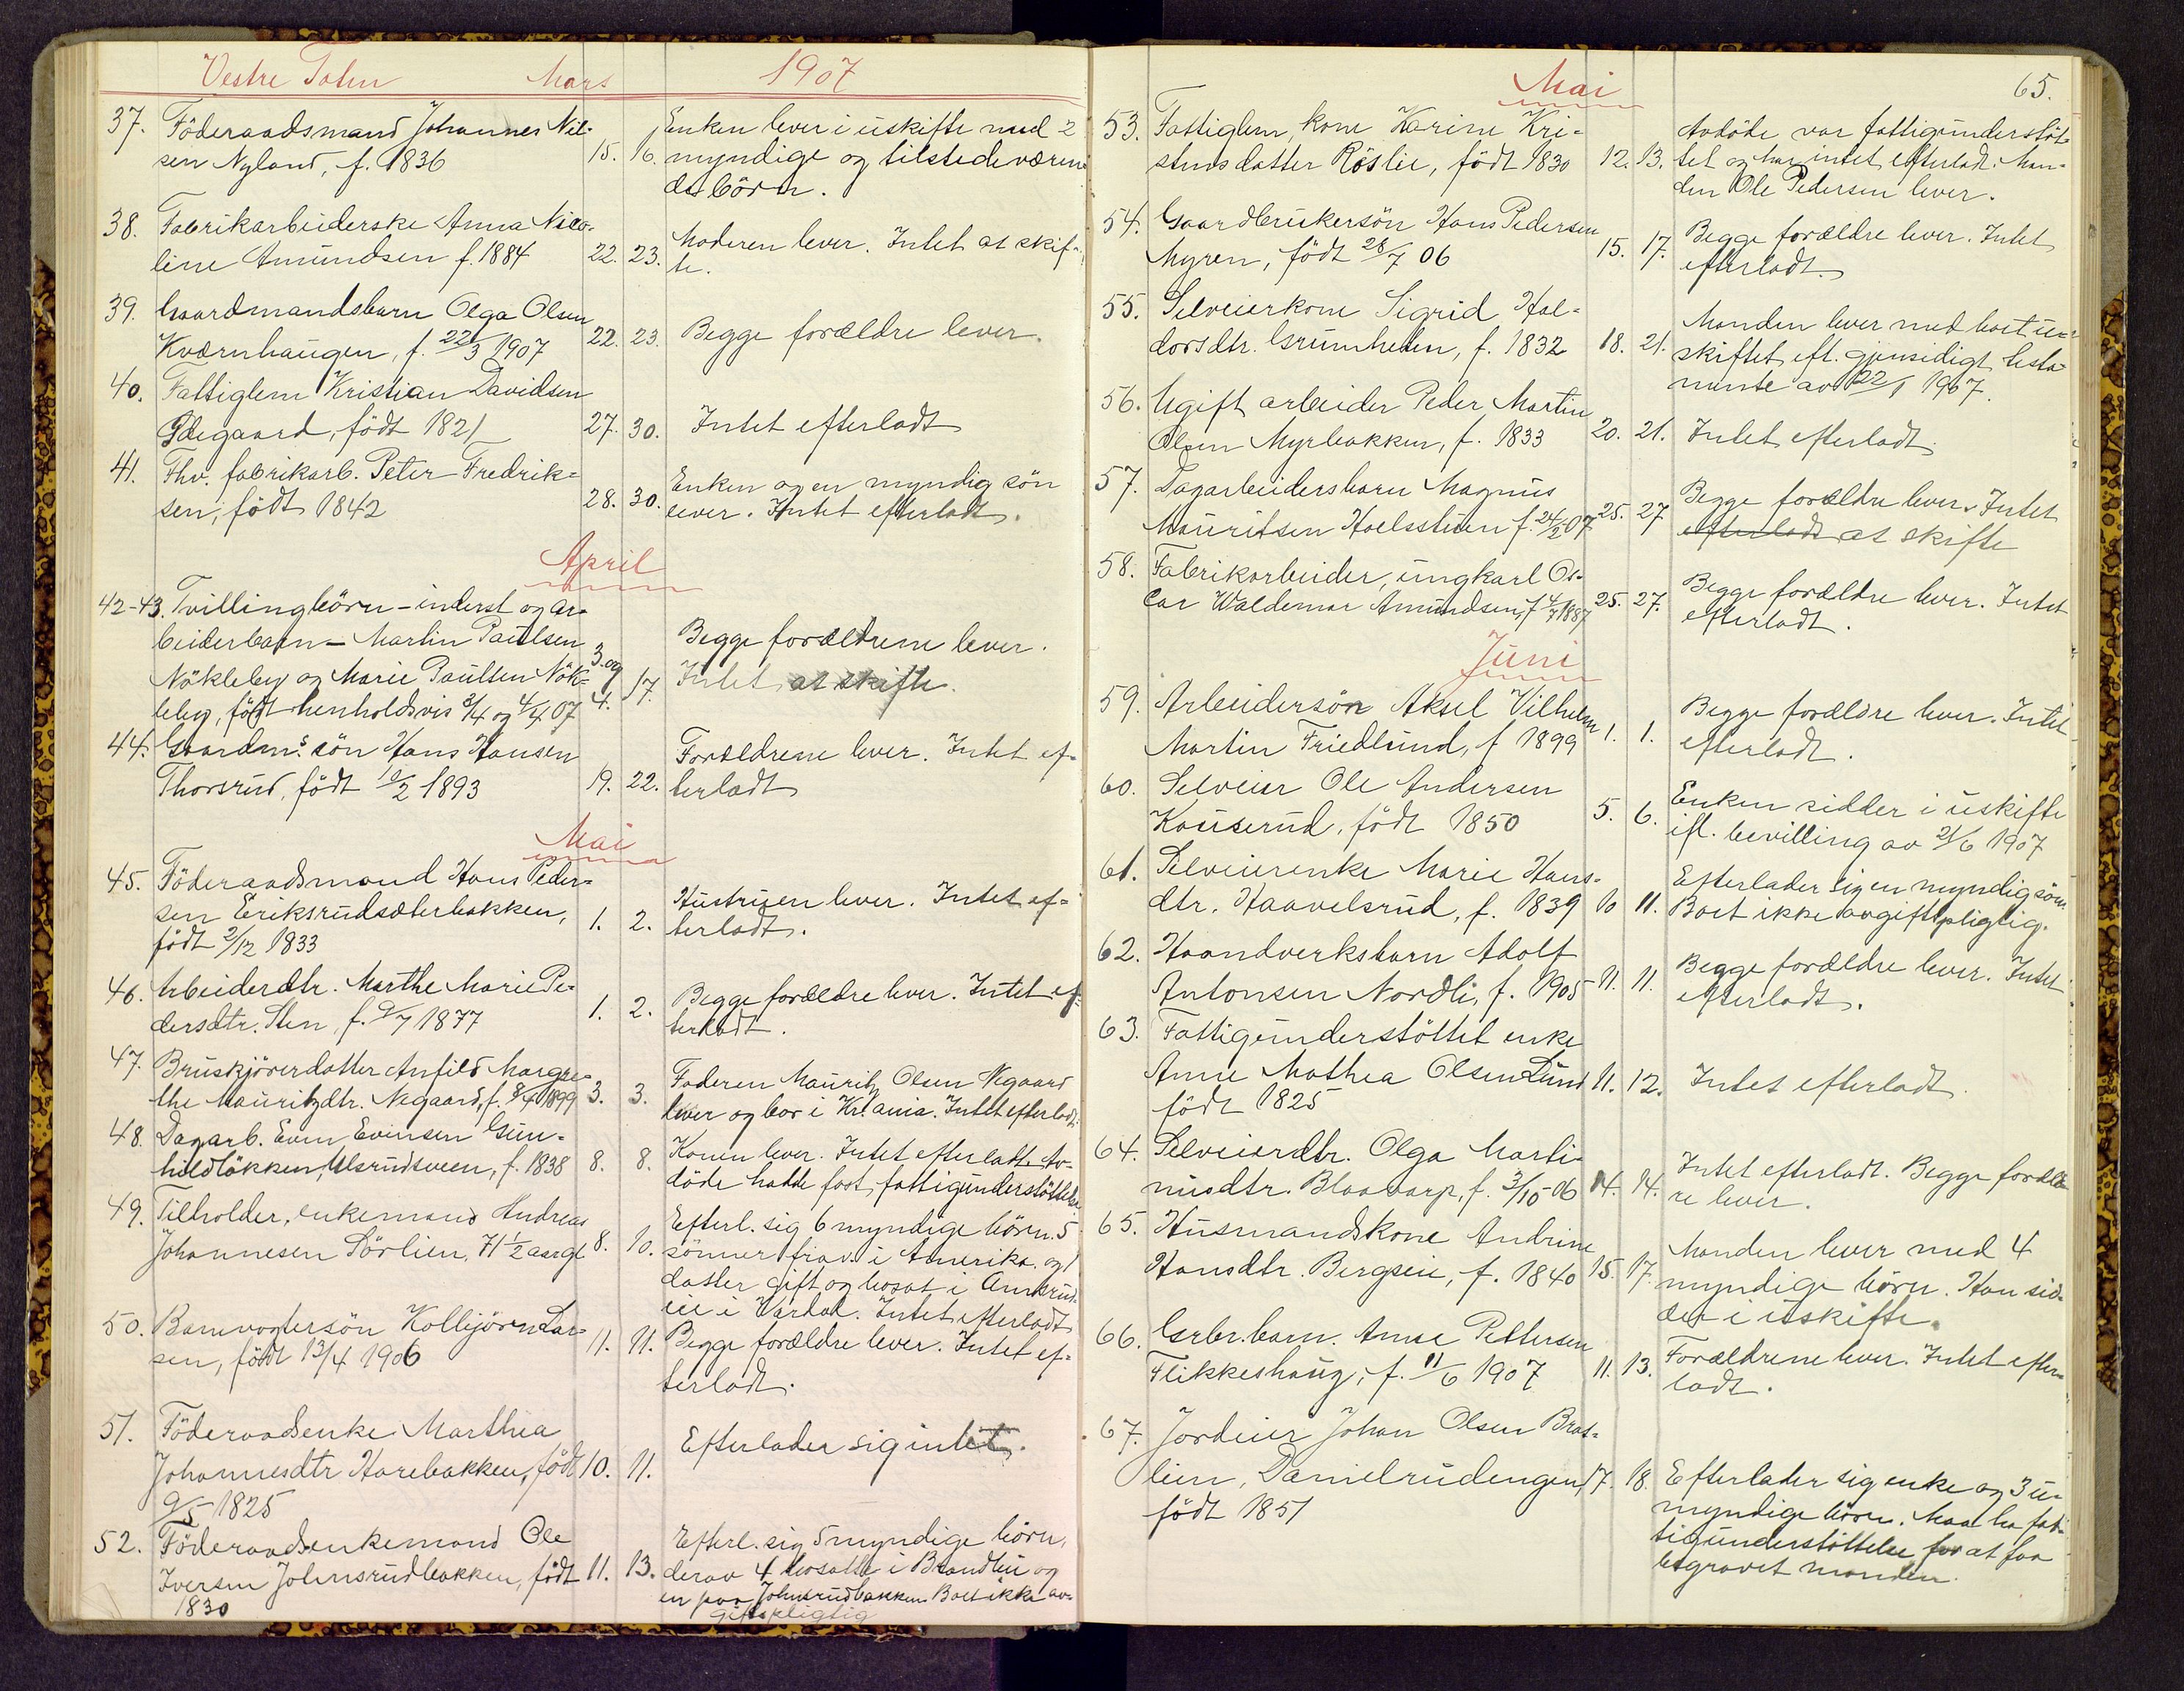 Vestre Toten Mars 1907
37. Föderaadsmand Johannes Nil-
sen Nyland, f. 1836 15. 16.
Enken lever i uskifte med 2
myndige og tilstedeværen-
de börn.
38. Fabrikarbeiderske Anna Nico-
line Amundsen f. 1884 22. 23.
Moderen lever. Intet at skif-
te.
39. Gaardmandsbarn Olga Olsen
Kværnhaugen, f. 22/3 1907 22. 23. Begge forældre lever.
40. Fattiglem Kristian Davidsen
Ödegaard, födt 1821 27. 30. Intet efterladt
41. Fhv. fabrikarb. Peter Fredrik-
sen, födt 1842 28. 30.
Enken og en myndig sön
lever. Intet efterladt.
April
42-43. Tvillingbörn - inderst og ar-
beiderbarn - Martin Paulsen
Nökleby og Marie Paulsen Nök-
leby, födt henholdsvis 3/4 og 4/4 07 3. og 4. 17.
Begge forældrene lever.
Intet at skifte.
44. Gaardm.s sön Hans Hansen
Thorsrud, födt 10/2 1893 19. 22.
Forældrene lever. Intet ef-
terladt
Mai
45. Föderaadsmand Hans Peder-
sen Eriksrudsæterbakken,
födt 2/12 1833 1. 2.
Hustruen lever. Intet ef-
terladt.
46. Arbeiderdtr. Marthe Marie Pe-
dersdtr. Sten, f. 9/7 1877 1. 2.
Begge forældre lever. Intet ef-
terladt.
47. Bruskjörerdatter Anfild Margre-
the Mauritzdtr. Negaard, f. 8/4 1899 3. 3.
Faderen Mauritz Olsen Negaard
lever og bor i Kr.ania. Intet efterladt.
48. Dagarb. Even Evensen Gun-
hildlökken, Ulsrudsveen, f. 1838 8. 8.
Konen lever. Intet efterladt. Av-
döde hadde fast fattigunderstöttelse
49. Tilholder, enkemand Andreas
Johannesen Sörlien, 71 1/2 aar gl. 8. 10.
Efterl. sig 6 myndige börn. 5
sönner frav. i Amerika og 1
datter gift og bosat i
i Vardal. Intet efterladt
50. Barnvogtersön Kolbjörn Lar-
sen, födt 13/4 1906 11. 11.
Begge forældre lever. Intet ef-
terladt.
51. Föderaadsenke Marthea
Johannesdtr Harebakken, födt 10. 11.
9/5 1825
Efterlader sig intet.
52. Föderaadsenkemand Ole
Iversen Johnsrudbakken, födt 11. 13.
1830
Efterl. sig 5 myndige börn,
derav 4 bosatte i Brandbu og
en paa Johnsrudbakken. Boet ikke av-
giftspligtig
65.
Mai
53. Fattiglem, kone Karine Kri-
stensdatter Röslie, födt 1830 12. 13.
Avdöde var fattigunderstöt-
tet og har intet efterladt. Man-
den Ole Pedersen lever.
54. Gaardbrukersön Hans Pedersen
Myren, födt 28/7 06 15. 17.
Begge forældre lever. Intet
efterladt.
55. Selveierkone Sigrid Hal-
dorsdtr. Grumheden, f. 1832 18. 21.
Manden lever med boet u-
skiftet eft. gjensidigt testa-
mente av 22/1 1907.
56. Ugift arbeider Peder Martin
Olsen Myrbakken, f. 1833 20. 21. Intet efterladt.
57. Dagarbeidersbarn Magnus
Mauritsen Hoelsstuen f. 24/2-07 25. 27
Begge forældre lever. Intet
efterladt at skifte
58. Fabrikarbeider, ungkarl Os-
car Waldemar Amundsen, f 4/7 1887 25. 27.
Begge forældre lever. Intet
efterladt.
Juni
59. Arbeidersön Aksel Vilhelm
Martin Friedlund, f 1899 1. 1.
Begge forældre lever. Intet
efterladt.
60. Selveier Ole Andersen
Kauserud, födt 1850 5. 6.
Enken sidder i uskifte
ifl. bevilling av 21/6 1907
61. Selveierenke Marie Hans-
dtr. Haavelsrud, f. 1839 10 11.
Efterlader sig en myndig sön.
Boet ikke avgiftspligtig.
62. Haandverksbarn Adolf
Antonsen Nordli, f. 1905 11. 11.
Begge forældre lever. Intet
efterladt.
63. Fattigunderstöttet enke
Anne Mathea Olsen Lund 11. 12. Intet efterladt.
födt 1825
64. Selveierdtr. Olga Marti-
nusdtr. Blaavarp, f. 3/10-06 14. 14.
Intet efterladt. Begge foræld-
re lever.
65. Husmandskone Andrine
Hansdtr. Bergseie, f. 1840 15. 17.
Manden lever med 4
myndige börn. Han sid-
der i uskifte.
66. Grbr. barn. Anne Pettersen
Flikkeshaug, f. 11/6 1907 11. 13.
Forældrene lever. Intet efter-
ladt.
67. Jordeier Johan Olsen Brat-
lien, Danielrudengen, 17. 18.
födt 1851
Efterlader sig enke og 3 u-
myndige börn. Maa ha fat-
tigunderstöttelse for at faa
begravet manden.